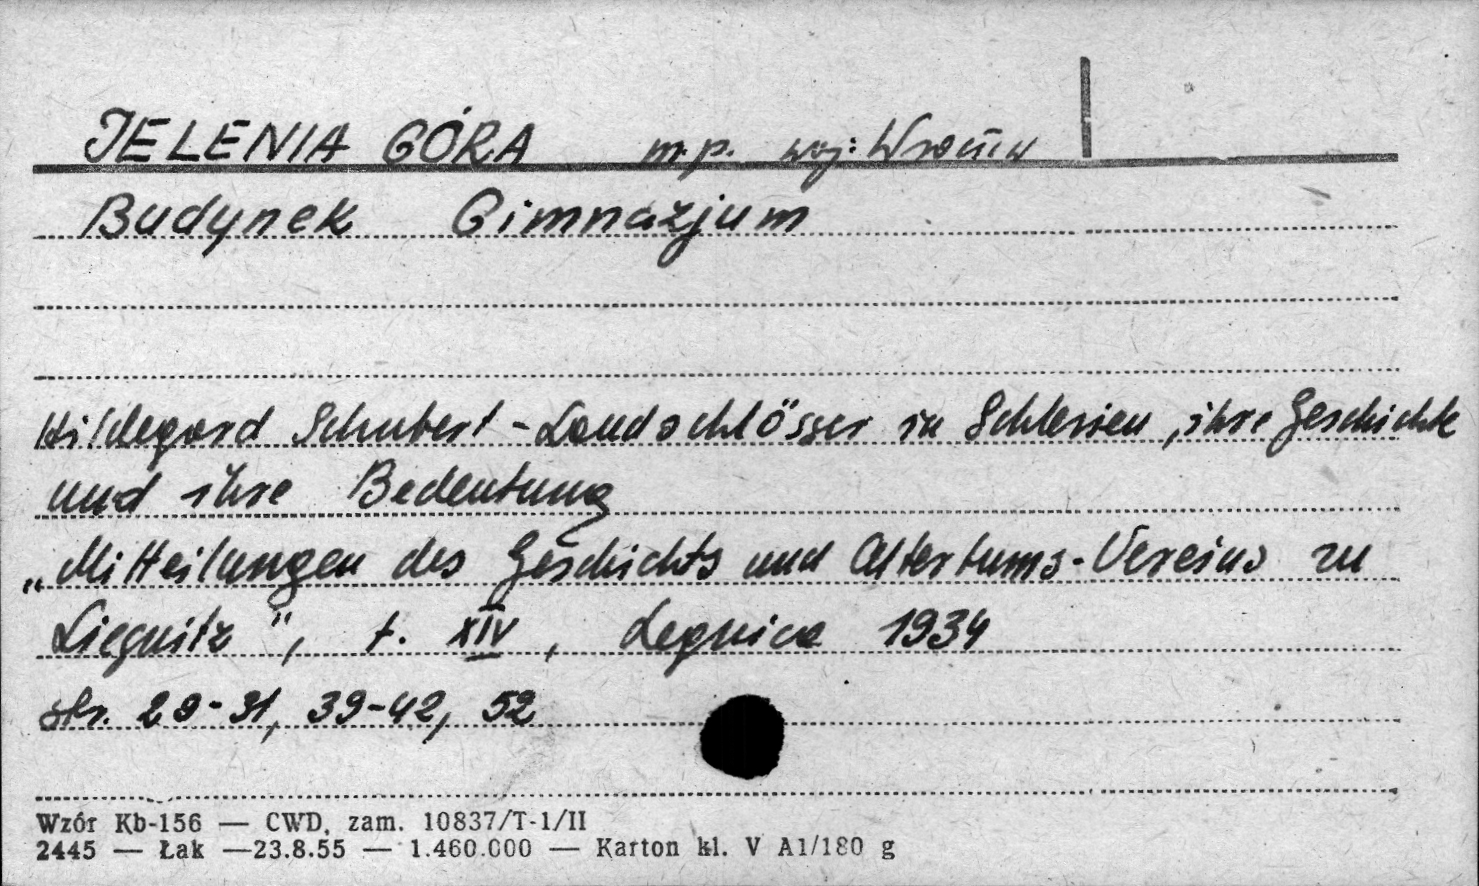 JELENIA GÓRA m.p. woj: Wrocław
Budynek Gimnazjum
Hildegard Schubert - Landschlösser in Schlesien, ihre Geschichte
und ihre Bedeutung
„Mitteilungen des Geschichts und Altertums-Vereins zu
Liegnitz", t. XIV, Legnica 1934
str. 29-31, 39-42, 52
Wzór Kb-156 — CWD, zam. 10837/T-1/II
2445 — Łąk —23.8.55 — 1.460.000 — Karton kl. V A1/180 g